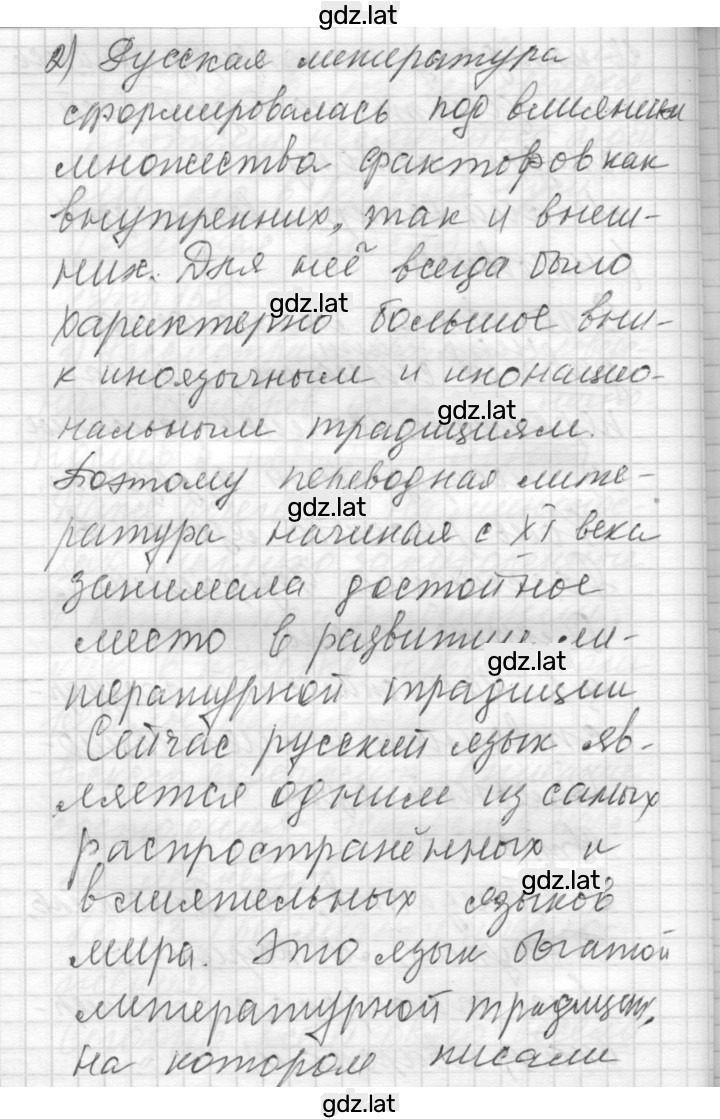 gdz.lat
2) Русская литература
сформировалась под влиянием
множества факторов как
внутренних, так и внеш-
них. Для неё всегда было
gdz.lat
характерно большое вни-
к иноязычным и инонацио-
gdz.lat
нальным традициям.
Поэтому переводная лите-
gdz.lat
ратура начиная с XI века
занимала достойное
место в развитии ли-
gdz.lat
тературной традиции
Сейчас русский язык яв-
ляется одним из самых
распространённых и
gdz.lat
влиятельных языков
мира. Это язык богатой
литературной традиции,
на котором писали
gdz.lat